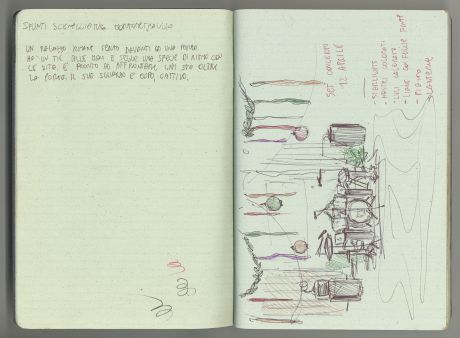 SPUNTI SCENEGGIATURA
UN RAGAZZO RIMANE FERMO DAVANTI AD UNA PORTA.
HA UN TIC ALLE MANI E SEGUE UNA SPECIE DI RITMO CON
LE DITA. E' PRONTO AD AFFRONTARE CHI STA OLTRE
LA PORTA. IL SUO SGUARDO E' CUPO, CATTIVO.
SET CONCERTO
12 APRILE
- STARLIGHTS
- NASTRI COLORATI
- LUCI COLORATE
- LIANE CON FOGLIE FINTE
- PIANTE
- LANTERNE